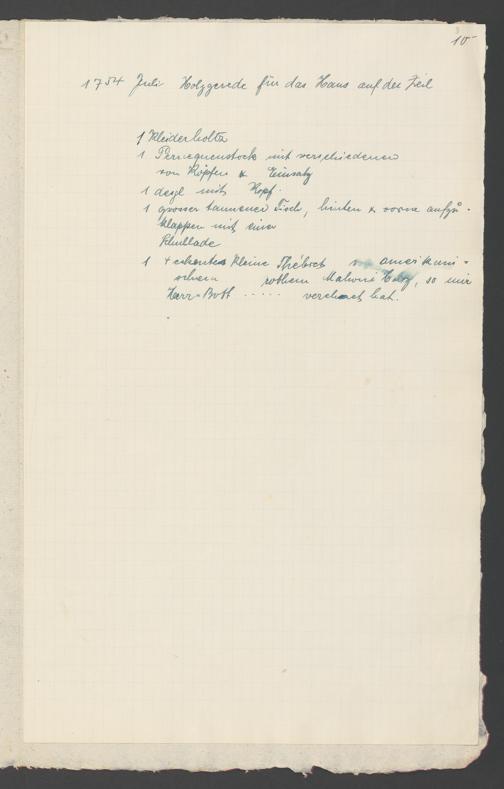 10
1754 Juli Holzgerede für das Haus auf der Zeil
1 Kleiderholtz
1 Perrequenstock mit verschiedenen
von Köpfen & Einsatz
1 desgl mits Kopf.
1 grosser tannener Tisch, hinten & vorne aufzu-
klappen mit einer
Schublade
1 4 eckentes kleine Thébret v amerikani-
schem rothem Holz, so mir
Herr Bott ..... verehrt hat.